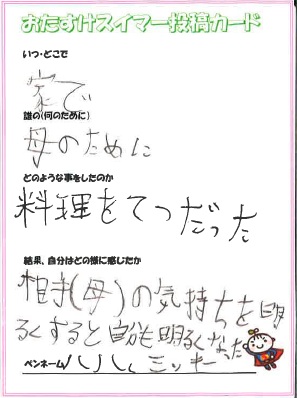 おたすけスイマー投稿カード
いつ・どこで
家で
誰の(何のために)
母のために
どのような事をしたのか
料理をてつだった
結果、自分はどの様に感じたか
相手(母)の気持ちを明
るくすると自分も明るくなった
ペンネーム ミッキー